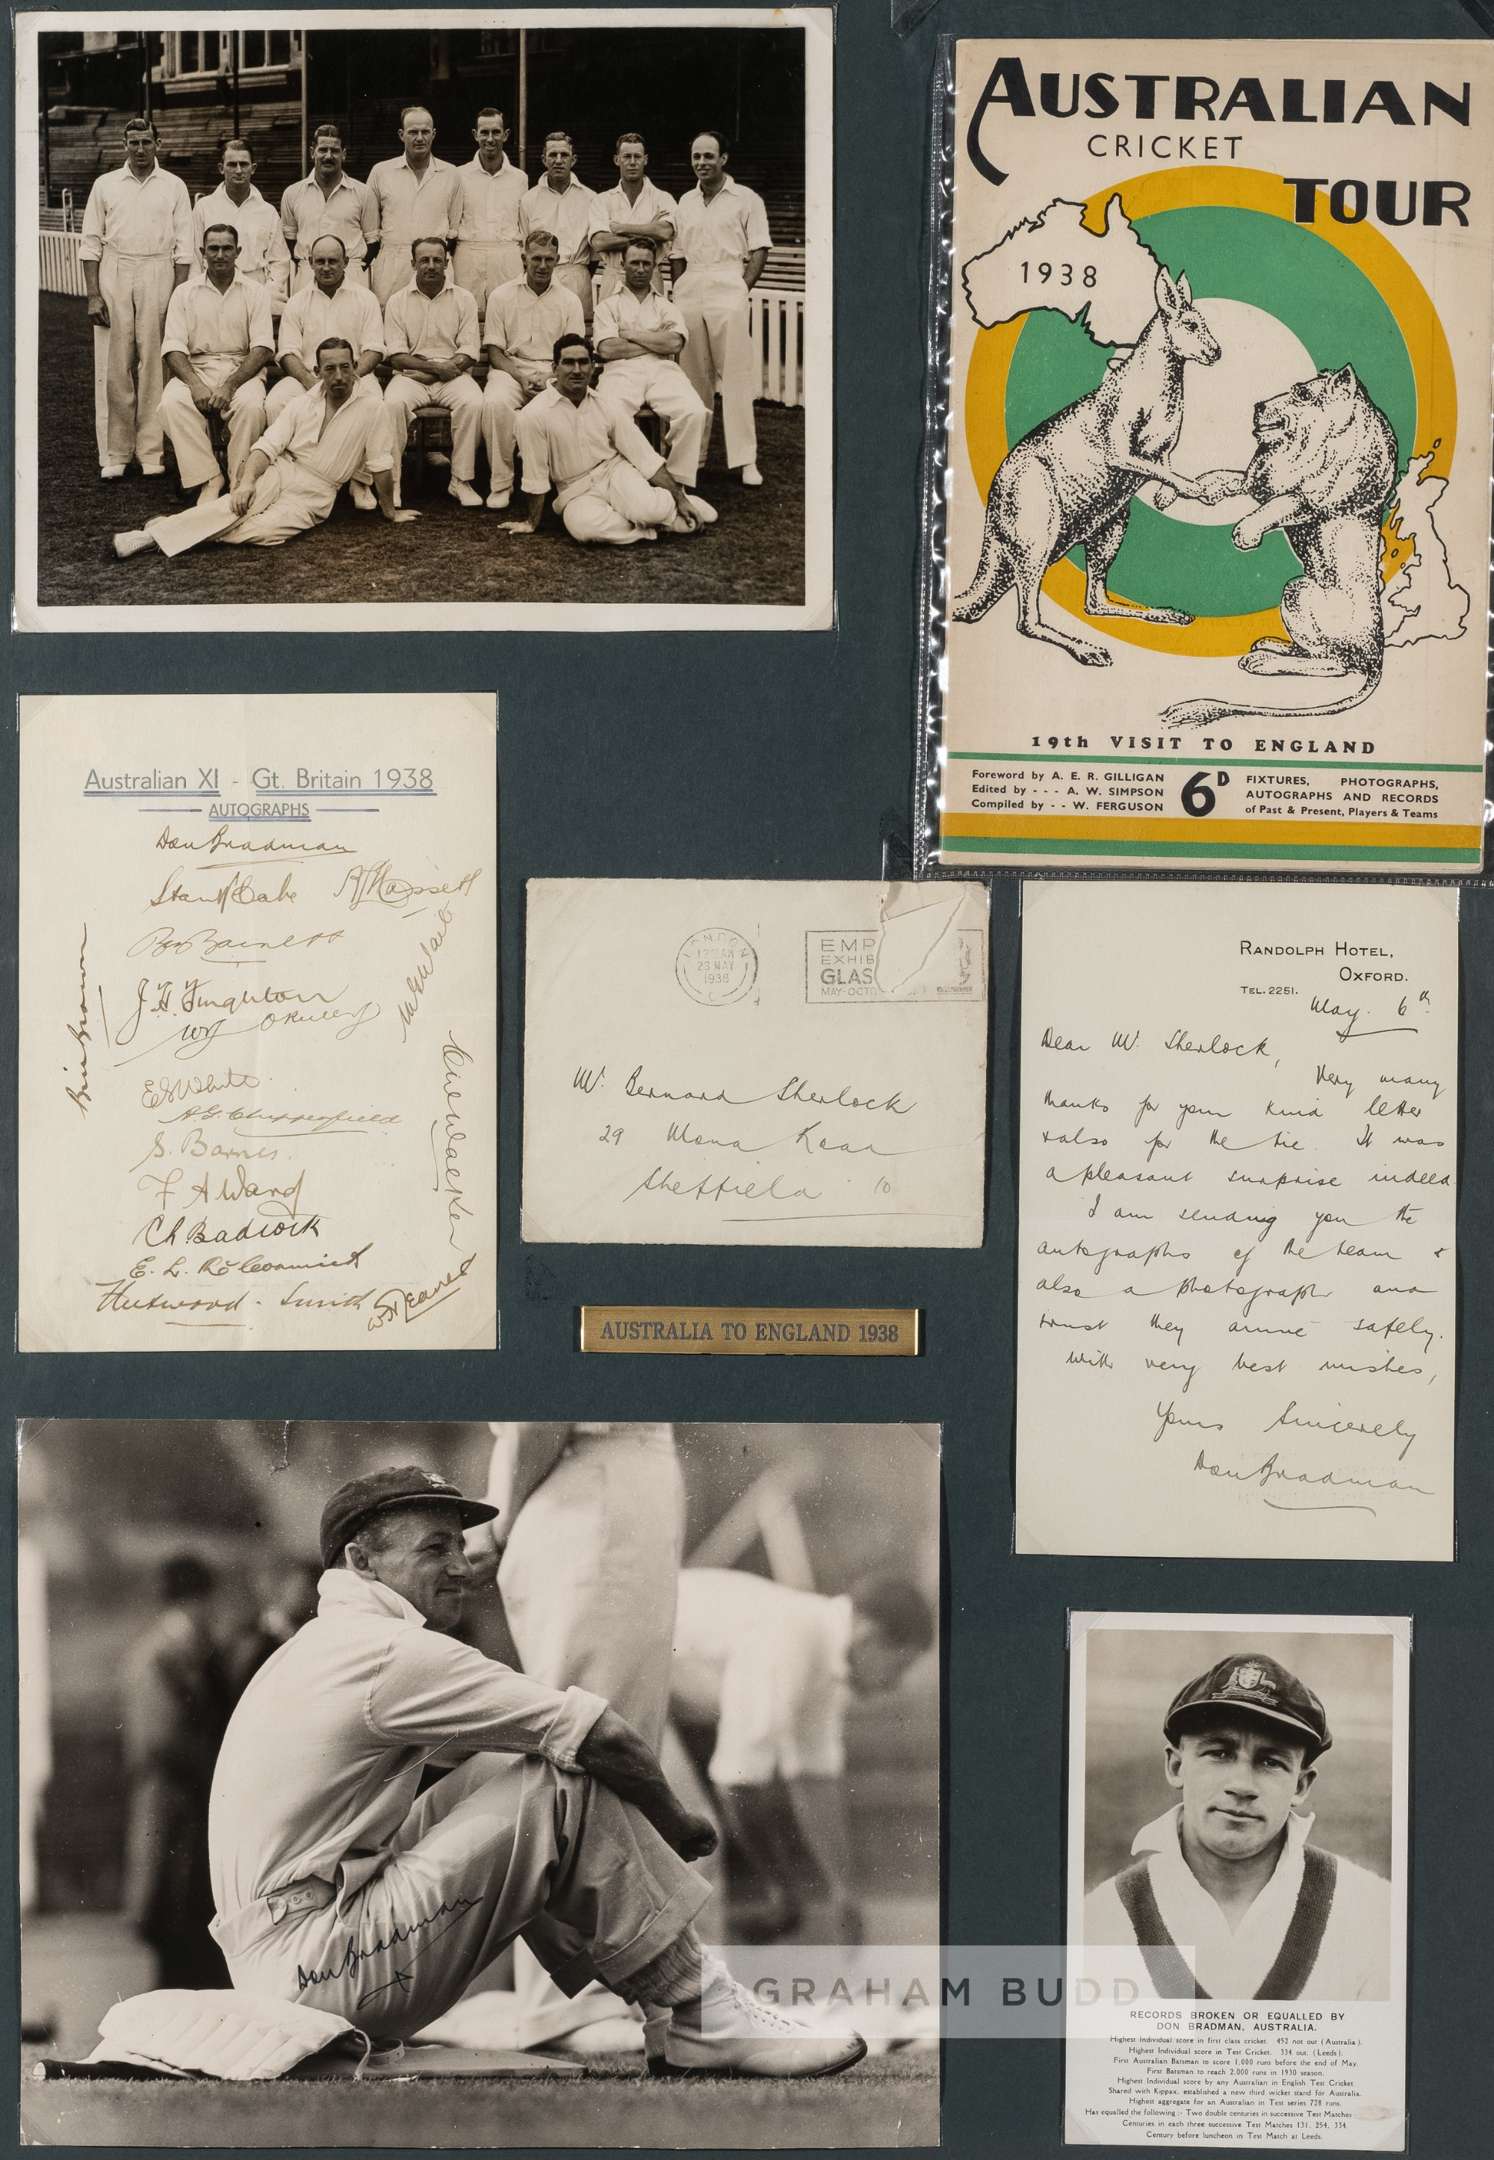 AUSTRALIAN
CRICKET
TOUR
1938
19th VISIT TO ENGLAND
Foreword by A. E. R. GILLIGAN
Edited by - - - A. W. SIMPSON
Compiled by - - W. FERGUSON
6D
FIXTURES, PHOTOGRAPHS,
AUTOGRAPHS AND RECORDS
of Past & Present, Players & Teams
Australian XI - Gt. Britain 1938
AUTOGRAPHS
Don Bradman
Stan McCabe
A L Hassett
B A Barnett
M. G. Waite
J. H. Fingleton
W J O'Reilly
Bill Brown
E S White
A. G. Chipperfield
S. Barnes.
F A Ward
C L Badcock
E. L. McCormick
Fleetwood-Smith
W Jeanes
LONDON
12 15 AM
23 MAY
1938
C
EMP
EXHIB
GLAS
MAY-OCTO
Mr. Bernard Sherlock
29 Mona Road
Sheffield 10
RANDOLPH HOTEL,
OXFORD.
TEL. 2251.
May. 6th
Dear Mr. Sherlock,
Very many
thanks for your kind letter
& also for the tie. It was
a pleasant surprise indeed
I am sending you the
autographs of the team &
also a photograph and
trust they arrive safely.
With very best wishes,
Yours Sincerely
Don Bradman
AUSTRALIA TO ENGLAND 1938
Don Bradman
GRAHAM BUDD
RECORDS BROKEN OR EQUALLED BY
DON BRADMAN, AUSTRALIA.
Highest Individual score in first class cricket. 452 not out (Australia).
Highest Individual score in Test Cricket. 334 out. (Leeds).
First Australian Batsman to score 1,000 runs before the end of May.
First Batsman to reach 2,000 runs in 1930 season.
Highest Individual score by any Australian in English Test Cricket
Shared with Kippax, established a new third wicket stand for Australia.
Highest aggregate for an Australian in Test series 728 runs.
Has equalled the following :- Two double centuries in successive Test Matches
Centuries in each three successive Test Matches 131, 254, 334.
Century before luncheon in Test Match at Leeds.